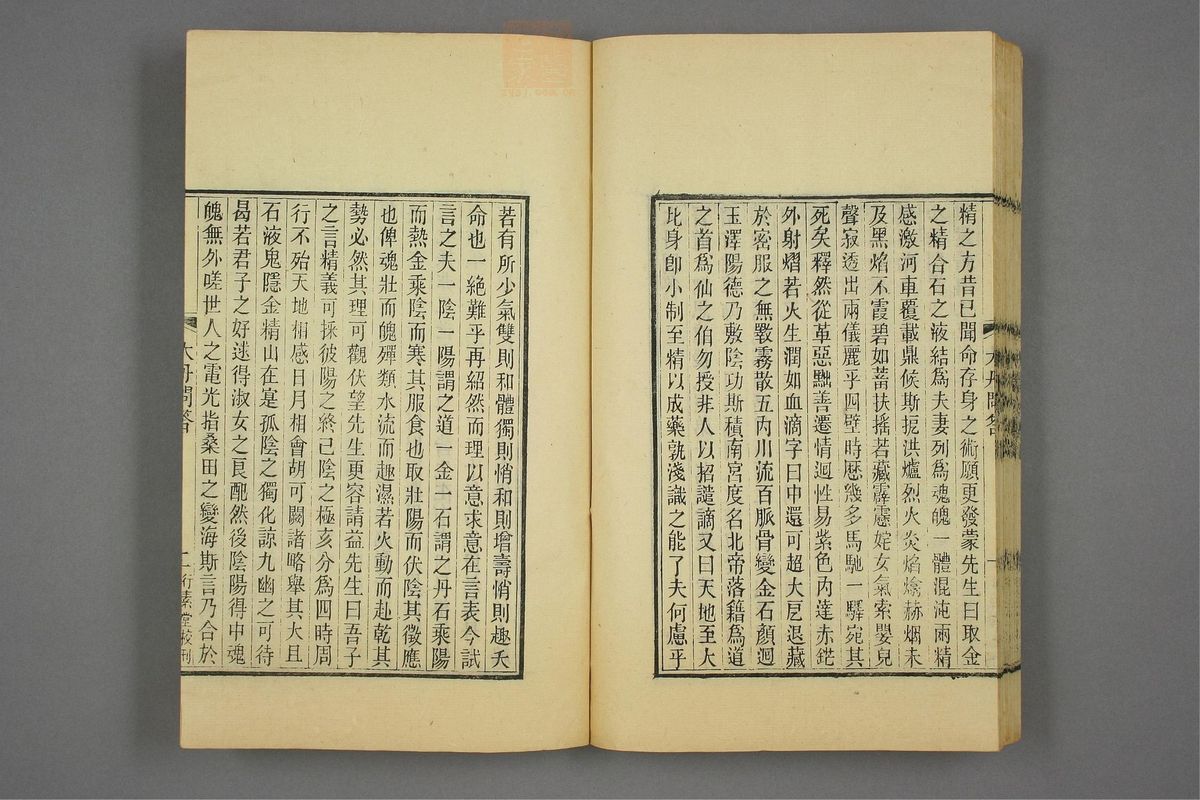 精之方昔已聞命存身之術願更發蒙先生曰取金
之精合石之液結爲夫妻列爲魂魄一體混沌兩精
感激河車覆載鼎候斯拒洪爐烈火炎焔熻赫烟未
及黑焔不霞碧如蓄扶搖若藏霹靂姹女氣索嬰兒
聲寂透出兩儀麗乎四壁時歷幾多馬馳一驛宛其
死矣釋然從革惡黜善遷情迴性易紫色內達赤鋩
外射熠若火生潤如血滴字曰中還可超大戹退藏
於密服之無斁霧散五內川流百脈骨變金石顏迴
玉澤陽德乃敷陰功斯積南宮度名北帝落籍爲道
之首爲仙之伯勿授非人以招譴謫又曰天地至大
比身卽小制至精以成藥孰淺識之能了夫何慮乎
大丹問答
一
若有所少氣雙則和體獨則悄和則增壽悄則趣夭
命也一絕難乎再紹然而理以意求意在言表今試
言之夫一陰一陽謂之道一金一石謂之丹石乘陽
而熱金乘陰而寒其服食也取壯陽而伏陰其徵應
也俾魂壯而魄殫類水流而趣濕若火動而赴乾其
勢必然其理可觀伏望先生更容請益先生曰吾子
之言精義可採彼陽之終已陰之極亥分爲四時周
行不殆天地相感日月相會胡可闕諸略舉其大且
石液鬼隱金精山在寔孤陰之獨化諒九幽之可待
曷若君子之好逑得淑女之良配然後陰陽得中魂
魄無外嗟世人之電光指桑田之變海斯言乃合於
大丹問答
二
行素堂校刊